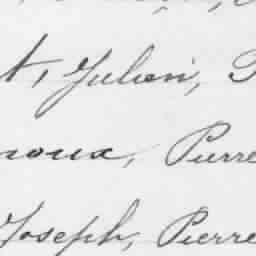 t, Julien, P
noux, Pierre
Joseph, Pierre